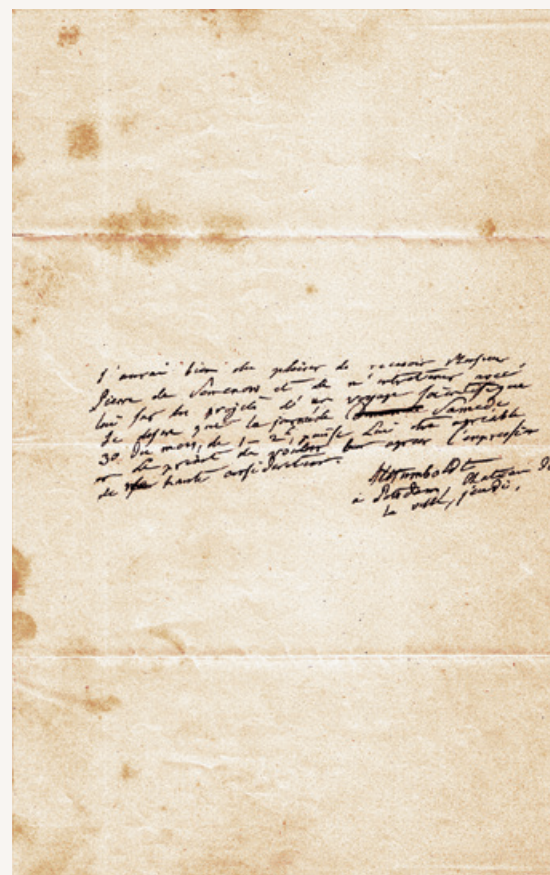 J'aurai bien du plaisir de recevoir Monsieur
Pierre de Semenow et de m'entretenir avec
lui sur les projets d'un voyage scientifique
Je desire que la journée Samedi
30 du mois, de 1 – 2, puisse Lui être agréable
et Le prie de vouloir agréer l'expression
de ma haute considération.
AlHumboldt
à Potsdam, Chateau de
la ville, jeudi.